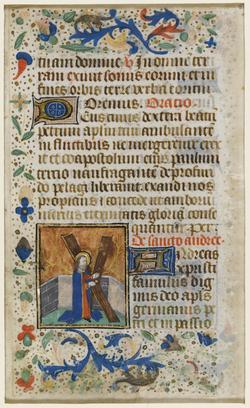 tuam domine v In omnem ter
ram exivit sonus eorum et in
fines orbis terre verba eorum
Oremus. Oracio.
Deus cuius dextera beatū
petrum ambulante
in fluctibus ne mergeretur erex
it et coapostolum eius paulum
tercio naufragantē de profū
do pelagi liberavit exaudi nos
propicius et concede ut amborū
meritis eternitatis gloriā conse
quamur per.
De sancto andree
Andreas
xpristi
famulus dig
nus dei apls
germanus pe
tri et in passio